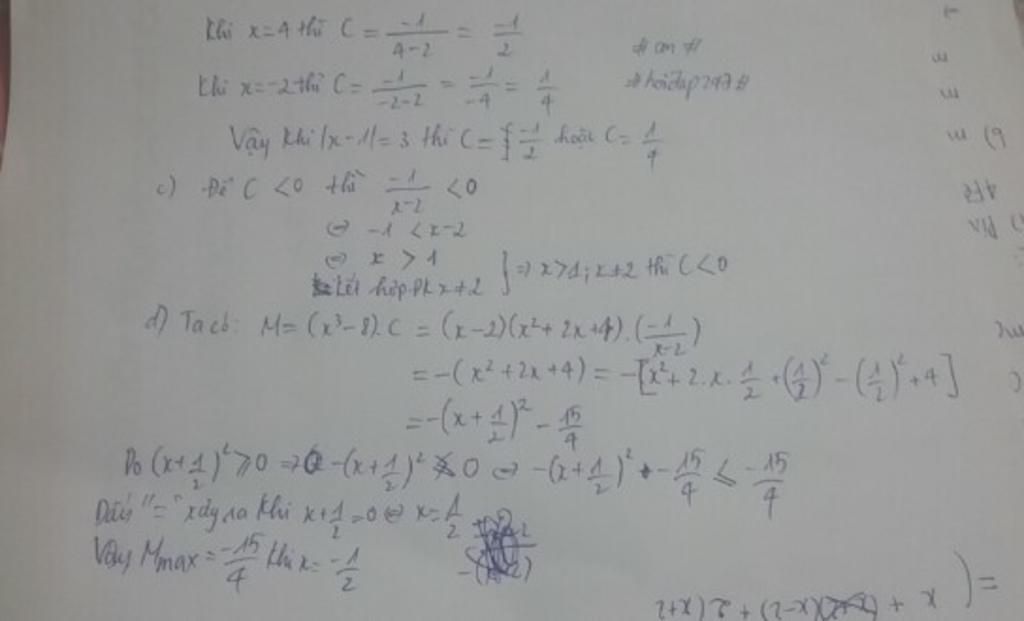 Khi x=4 thì C = \frac{-1}{4-2} = \frac{-1}{2}
# cm #
Khi x=-2 thì C = \frac{-1}{-2-2} = \frac{-1}{-4} = \frac{1}{4}
#hoidap247#
Vậy khi |x-1|=3 thì C = \frac{-1}{2} hoặc C = \frac{1}{4}
c) Để C <0 thì \frac{-1}{x-2} <0
⇔ -1 < x-2
⇔ x > 1
Kết hợp ĐK x≠2 } ⇒ x>1; x≠2 thì C<0
d) Ta có: M = (x³-8).C = (x-2)(x²+2x+4).(\frac{-1}{x-2})
= -(x²+2x+4) = -[x²+2.x.\frac{1}{2}+(\frac{1}{2})²-(\frac{1}{2})²+4]
= -(x+\frac{1}{2})² - \frac{15}{4}
Do (x+\frac{1}{2})² ≥0 ⇒ -(x+\frac{1}{2})² ≤ 0 ⇔ -(x+\frac{1}{2})² - \frac{15}{4} ≤ -\frac{15}{4}
Dấu "=" xảy ra khi x+\frac{1}{2}=0 ⇔ x=\frac{1}{2}
Vậy Mmax = \frac{-15}{4} khi x = -\frac{1}{2}